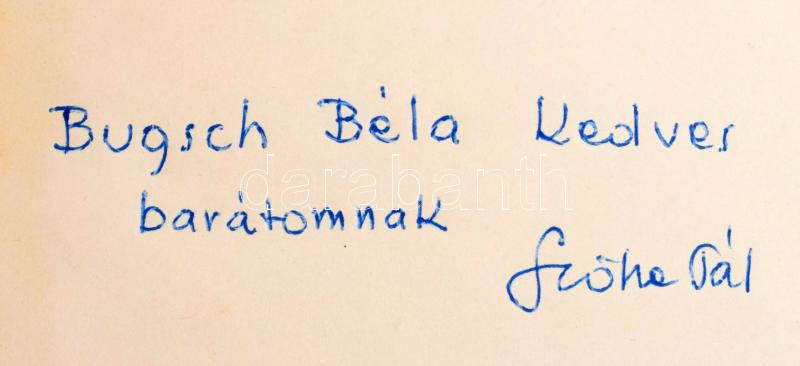 Bugsch Béla kedves
darabanth
barátomnak
Szőke Pál